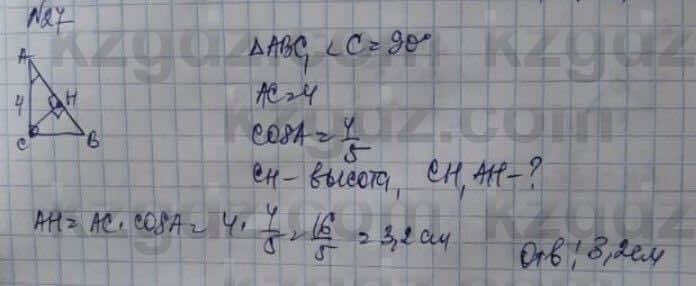 №27
A
4
H
C
B
ΔABC, ∠C = 90°
AC = 4
cosA = 4/5
CH - высота, CH, AH - ?
AH = AC · cosA = 4 · 4/5 = 16/5 = 3,2 см
Отв: 3,2 см
kzgdz.com